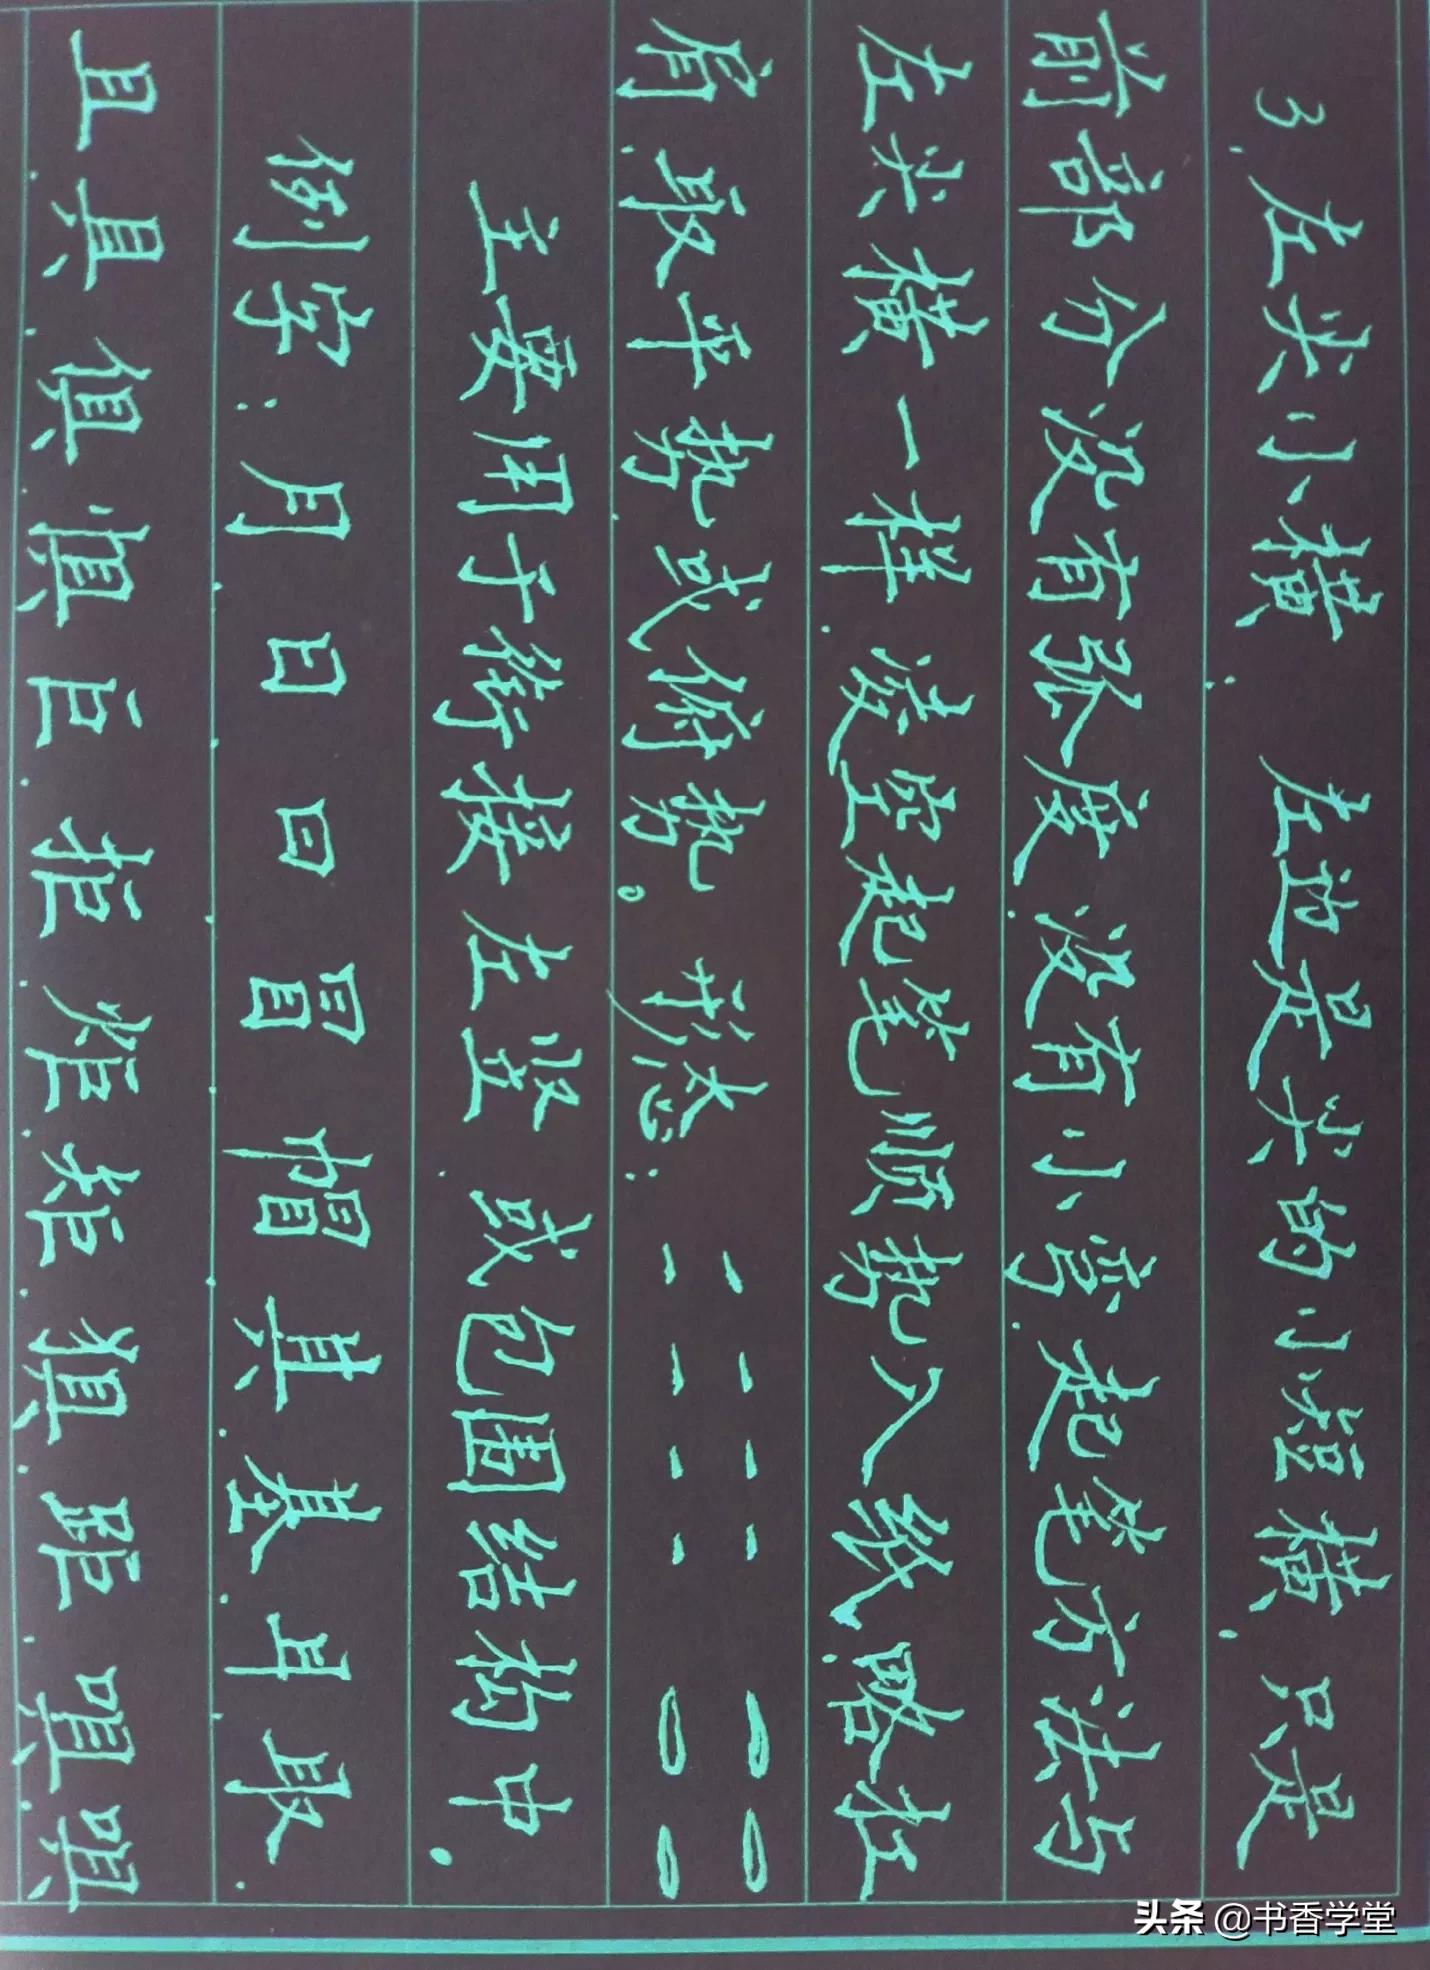 3.左尖小横. 左边是尖的小短横. 只是
前部分没有弧度. 没有小弯. 起笔方法与
左尖横一样. 凌空起笔顺势入纸. 略扛
肩. 取平势或俯势。形态:
主要用于衔接左竖. 或包围结构中.
例字: 月.日.曰.冒.帽.其.基.耳.取.
且.具.俱.惧.巨.拒.炬.矩.距.
头条 @书香学堂